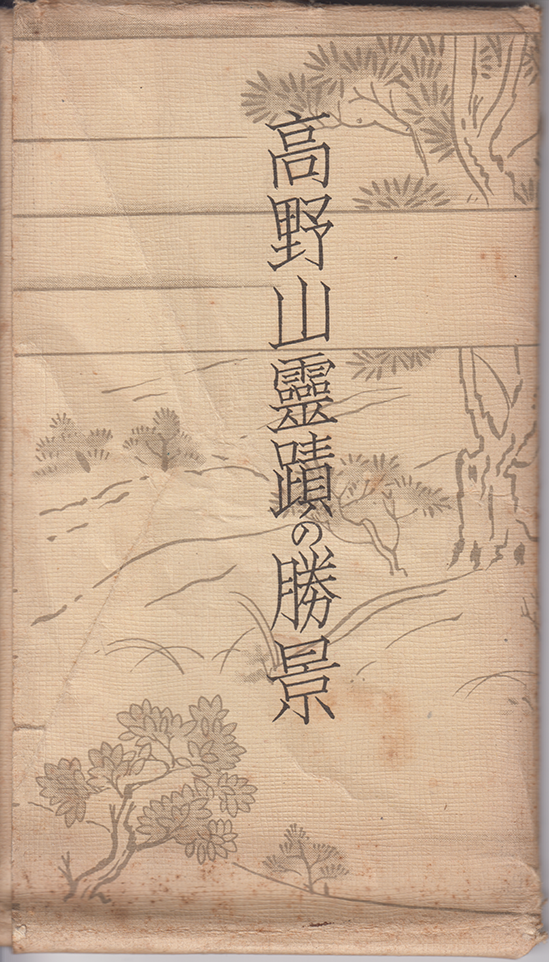 高野山靈蹟の勝景